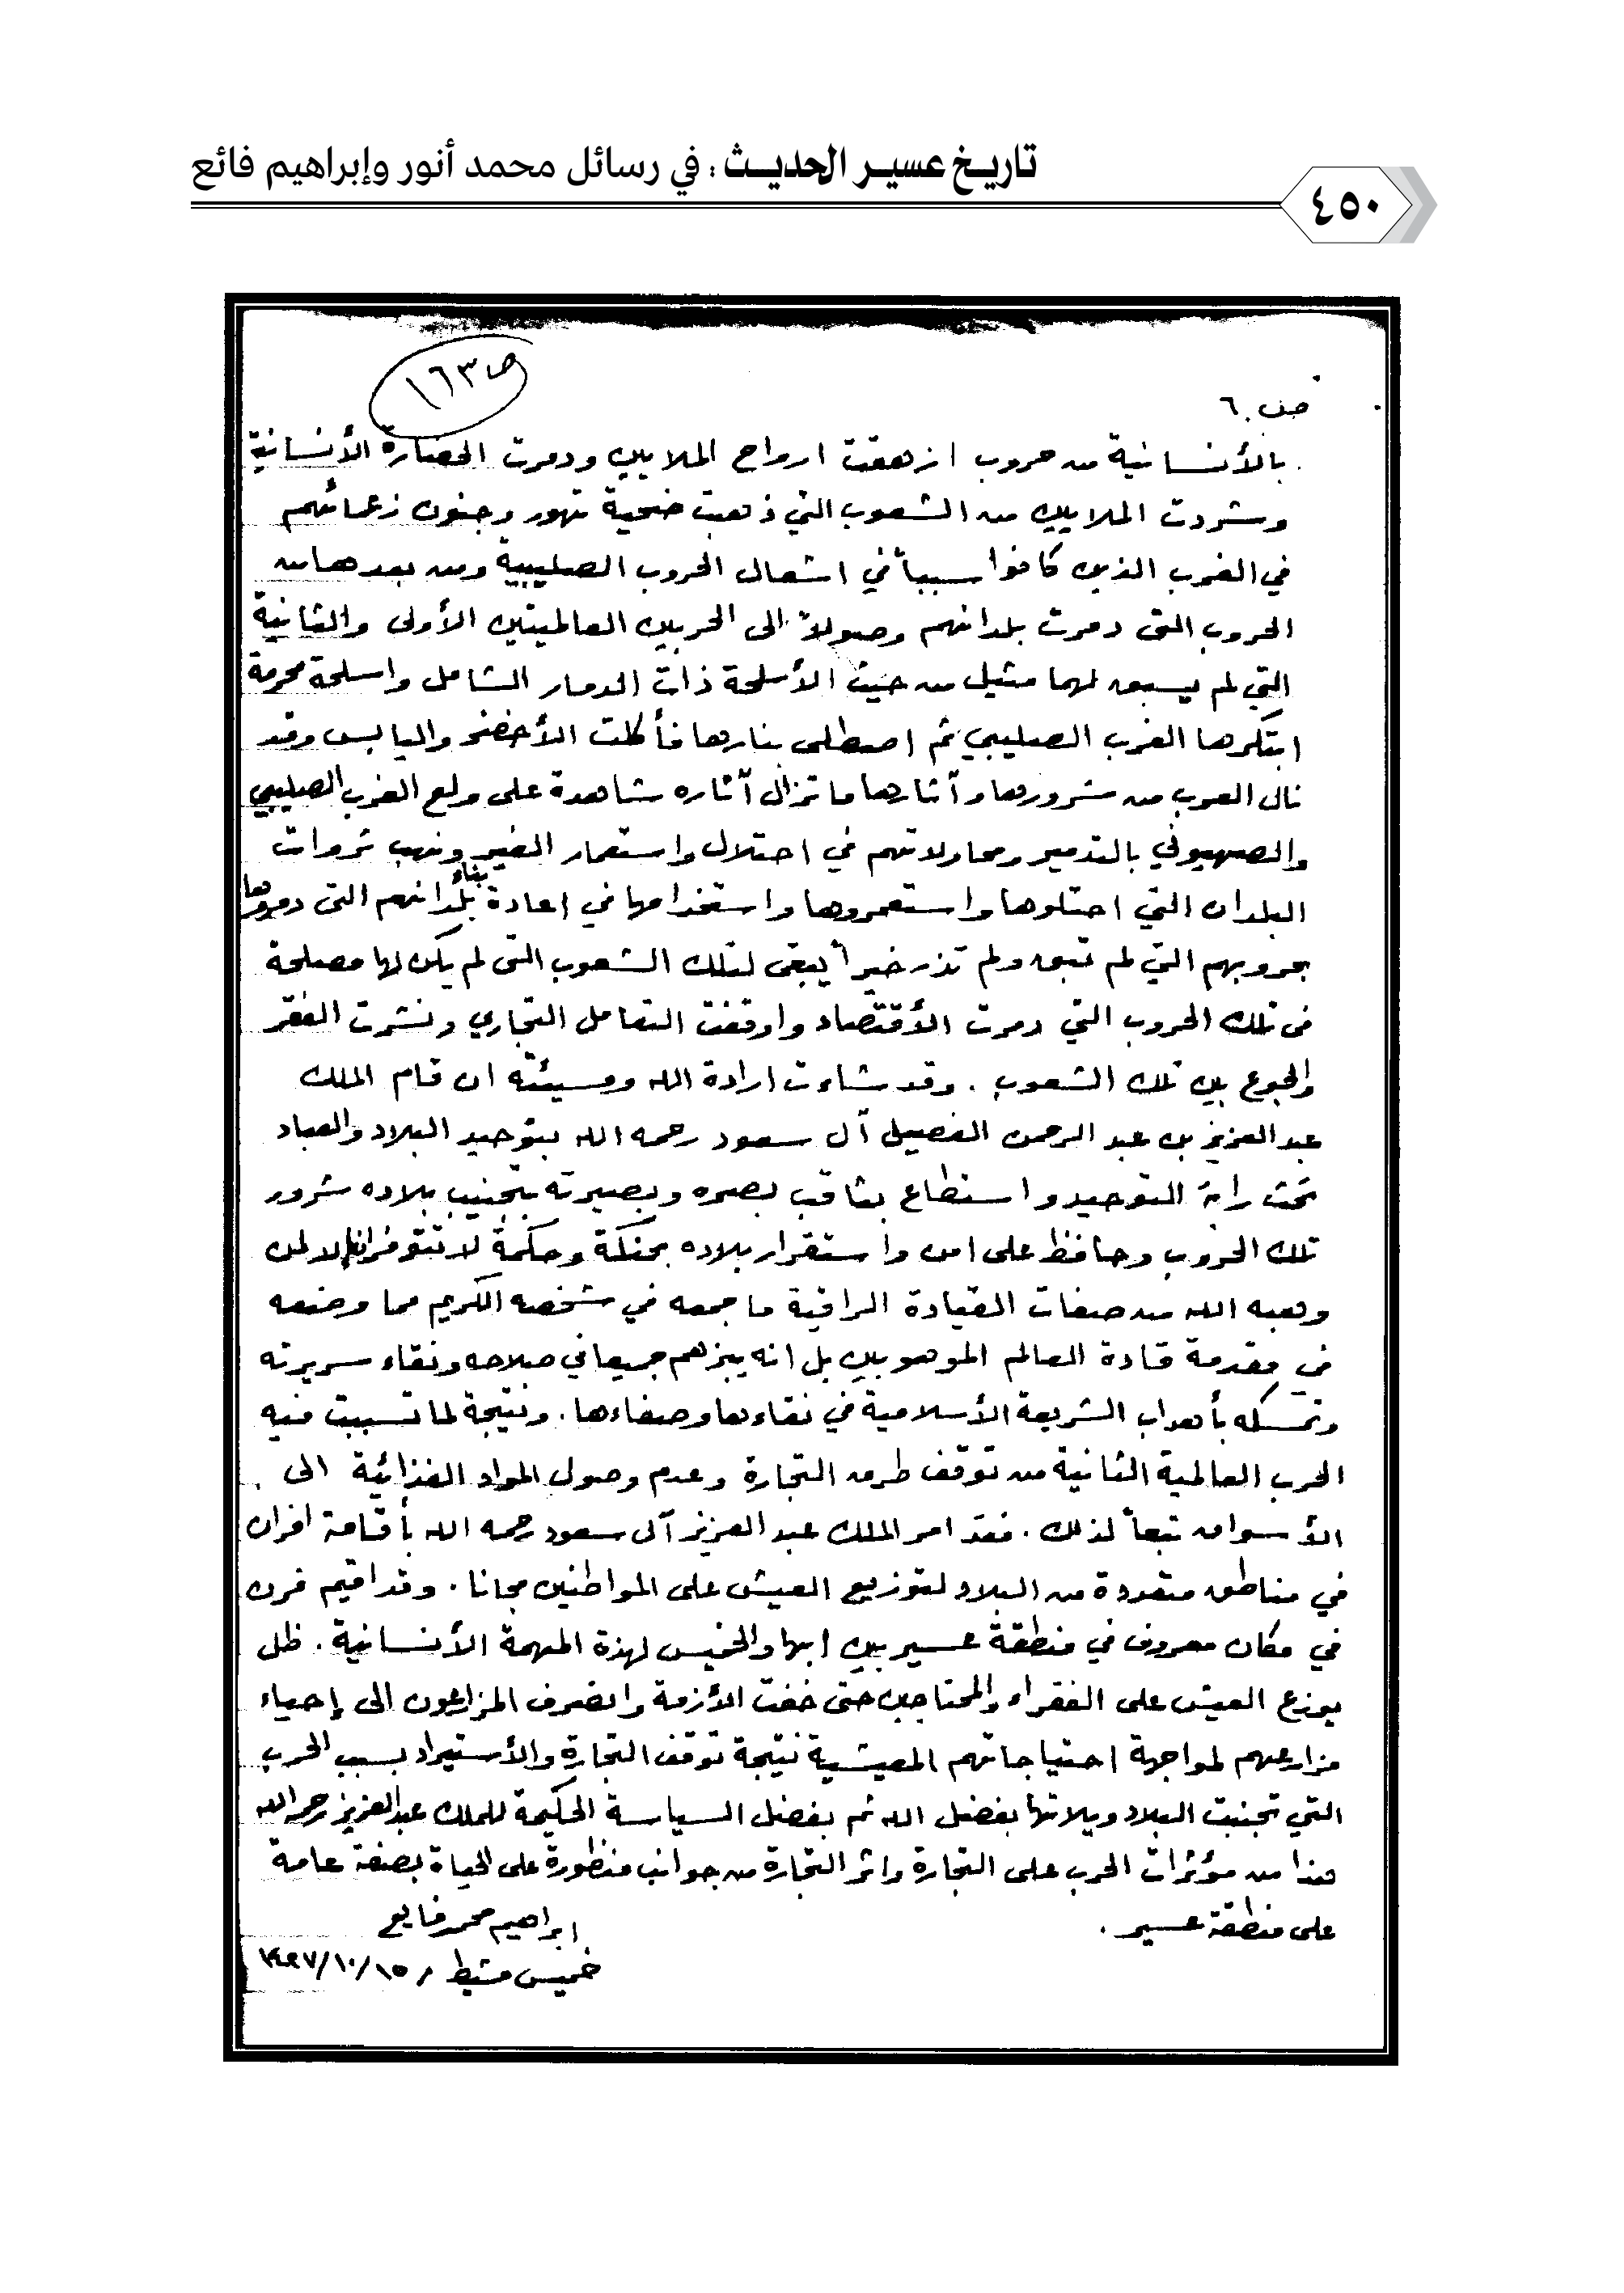 تاريخ عسير الحديث : في رسائل محمد أنور وإبراهيم فائع
٤٥٠
ص ١٦٣
ص ٦٠
بالأنسانية من حروب ازهقت ارواح الملايين ودمرت الحضارة الأنسانية
وشردت الملايين من الشعوب التي ذهبت ضحية تهور وجنون زعمائهم
في الغرب الذين كانوا سبباً في اشعال الحروب الصليبية ومن بعدها من
الحروب التى دمرت بلدانهم وصولاً الى الحربين العالميتين الأولى والثانية
التي لم يسبق لهما مثيل من حيث الأسلحة ذات الدمار الشامل واسلحة محرمة
ابتكرها الغرب الصليبي ثم اصطلى بنارها فأكلت الأخضر واليابس وقد
نال العرب من شرورها وآثارها ما تزال آثاره شاهدة على ولع الغرب الصليبي
والصهيوني بالتدمير ومحاولاتهم في احتلال واستعمار الغير ونهب ثروات
البلدان التي احتلوها واستعمروها واستخدامها في إعادة بناء بلدانهم التى دمروها
بحروبهم التي لم تبق ولم تذر خيراً يبقى لتلك الشعوب التى لم يكن لها مصلحة
فى تلك الحروب التي دمرت الأقتصاد واوقفت التعامل التجاري ونشرت الفقر
والجوع بين تلك الشعوب . وقد شاءت ارادة الله ومسيئته ان قام الملك
عبد العزيز بن عبد الرحمن الفصيل آل سعود رحمه الله بتوحيد البلاد والعباد
تحت راية التوحيد واستطاع بثاقب بصره وبصيرته بتجنيب بلاده شرور
تلك الحروب وحافظ على امن واستقرار بلاده بحنكة وحكمة لا تتوفران إلا لمن
وهبه الله من صفات القيادة الراقية ما جمعه في شخصه الكريم مما وضعه
في مقدمة قادة العالم الموهوبين بل انه يبزهم جميعا في صلاحه ونقاء سريرته
وتمسكه بأهداب الشريعة الأسلامية في نقاءها وصفاءها . ونتيجة لما تسببت فيه
الحرب العالمية الثانية من توقف طرق التجارة وعدم وصول المواد الغذائية الى
الأسواق تبعاً لذلك . فقد امر الملك عبد العزيز آل سعود رحمه الله بأقامة افران
في مناطق متعددة من البلاد لتوزيع العيش على المواطنين مجانا . وقد اقيم فرن
في مكان معروف في منطقة عسير بين ابها والخميس لهذة المهمة الأنسانية . ظل
يوزع العيش على الفقراء والمحتاجين حتى خفت الأزمة وانصرف المزارعون الى إحياء
مزارعهم لمواجهة احتياجاتهم المعيشية نتيجة توقف التجارة والأستيراد بسبب الحرب
التي تجنبت البلاد ويلاتها بفضل الله ثم بفضل السياسة الحكيمة للملك عبد العزيز رحمه الله
هذا من مؤثرات الحرب على التجارة واثر التجارة من جوانب منظورة على الحياة بصفة عامة
على منطقة عسير .
ابراهيم محمد فايع
خميس مشيط ١٤٢٧/١٠/١٥